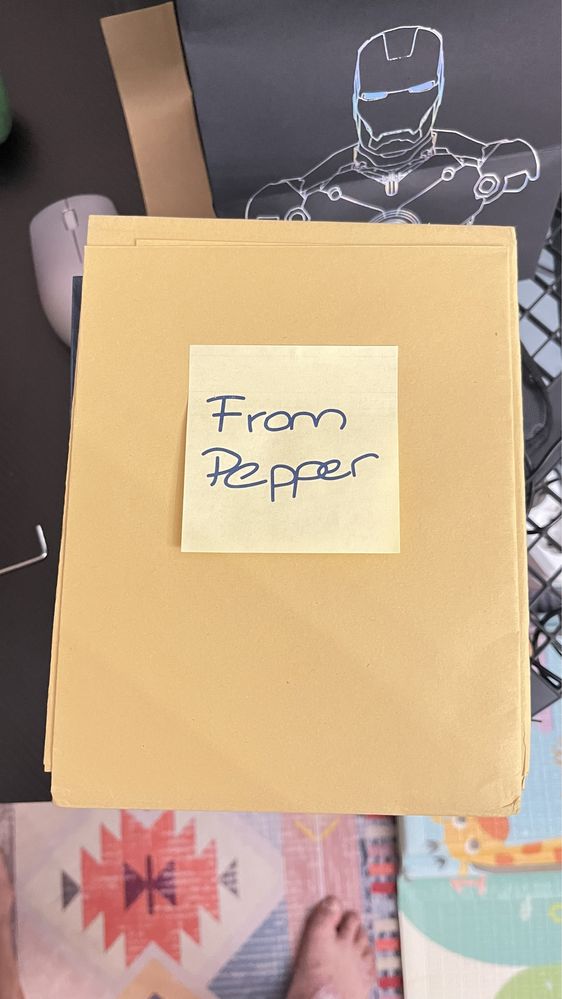 From
Pepper